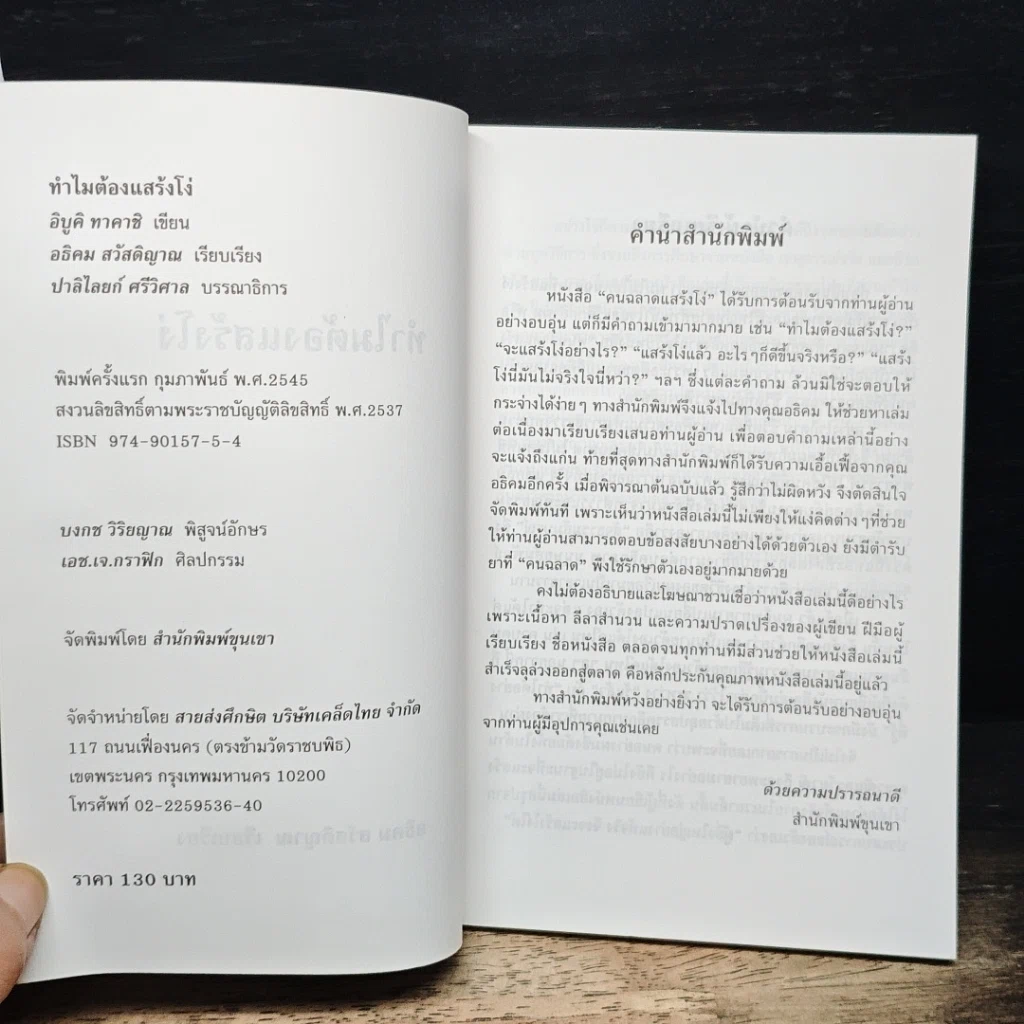 ทำไมต้องแสร้งโง่
อิบูคิ ทาคาชิ เขียน
อธิคม สวัสดิญาณ เรียบเรียง
ปาลิไลยก์ ศรีวิศาล บรรณาธิการ
พิมพ์ครั้งแรก กุมภาพันธ์ พ.ศ.2545
สงวนลิขสิทธิ์ตามพระราชบัญญัติลิขสิทธิ์ พ.ศ.2537
ISBN 974-90157-5-4
บงกช วิริยญาณ พิสูจน์อักษร
เอช.เจ.กราฟิก ศิลปกรรม
จัดพิมพ์โดย สำนักพิมพ์ขุนเขา
จัดจำหน่ายโดย สายส่งศึกษิต บริษัทเคล็ดไทย จำกัด
117 ถนนเฟื่องนคร (ตรงข้ามวัดราชบพิธ)
เขตพระนคร กรุงเทพมหานคร 10200
โทรศัพท์ 02-2259536-40
ราคา 130 บาท
คำนำสำนักพิมพ์
หนังสือ “คนฉลาดแสร้งโง่” ได้รับการต้อนรับจากท่านผู้อ่าน
อย่างอบอุ่น แต่ก็มีคำถามเข้ามามากมาย เช่น “ทำไมต้องแสร้งโง่?”
“จะแสร้งโง่อย่างไร?” “แสร้งโง่แล้ว อะไรๆก็ดีขึ้นจริงหรือ?” “แสร้ง
โง่นี่มันไม่จริงใจนี่หว่า?” ฯลฯ ซึ่งแต่ละคำถาม ล้วนมิใช่จะตอบให้
กระจ่างได้ง่ายๆ ทางสำนักพิมพ์จึงแจ้งไปทางคุณอธิคม ให้ช่วยหาเล่ม
ต่อเนื่องมาเรียบเรียงเสนอท่านผู้อ่าน เพื่อตอบคำถามเหล่านี้อย่าง
จะแจ้งถึงแก่น ท้ายที่สุดทางสำนักพิมพ์ก็ได้รับความเอื้อเฟื้อจากคุณ
อธิคมอีกครั้ง เมื่อพิจารณาต้นฉบับแล้ว รู้สึกว่าไม่ผิดหวัง จึงตัดสินใจ
จัดพิมพ์ทันที เพราะเห็นว่าหนังสือเล่มนี้ไม่เพียงให้แง่คิดต่างๆที่ช่วย
ให้ท่านผู้อ่านสามารถตอบข้อสงสัยบางอย่างได้ด้วยตัวเอง ยังมีตำรับ
ยาที่ “คนฉลาด” พึงใช้รักษาตัวเองอยู่มากมายด้วย
คงไม่ต้องอธิบายและโฆษณาชวนเชื่อว่าหนังสือเล่มนี้ดีอย่างไร
เพราะเนื้อหา ลีลาสำนวน และความปราดเปรื่องของผู้เขียน ฝีมือผู้
เรียบเรียง ชื่อหนังสือ ตลอดจนทุกท่านที่มีส่วนช่วยให้หนังสือเล่มนี้
สำเร็จลุล่วงออกสู่ตลาด คือหลักประกันคุณภาพหนังสือเล่มนี้อยู่แล้ว
ทางสำนักพิมพ์หวังอย่างยิ่งว่า จะได้รับการต้อนรับอย่างอบอุ่น
จากท่านผู้มีอุปการคุณเช่นเคย
ด้วยความปรารถนาดี
สำนักพิมพ์ขุนเขา